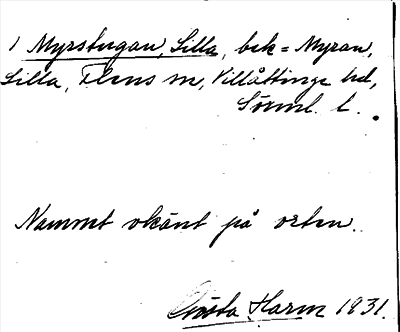 1 Myrstugan, Lilla, bek = Myran,
Lilla, Flens sn, Villåttinge hd,
Sörml. l.
Namnet okänt på orten.
Gösta Harm 1931.